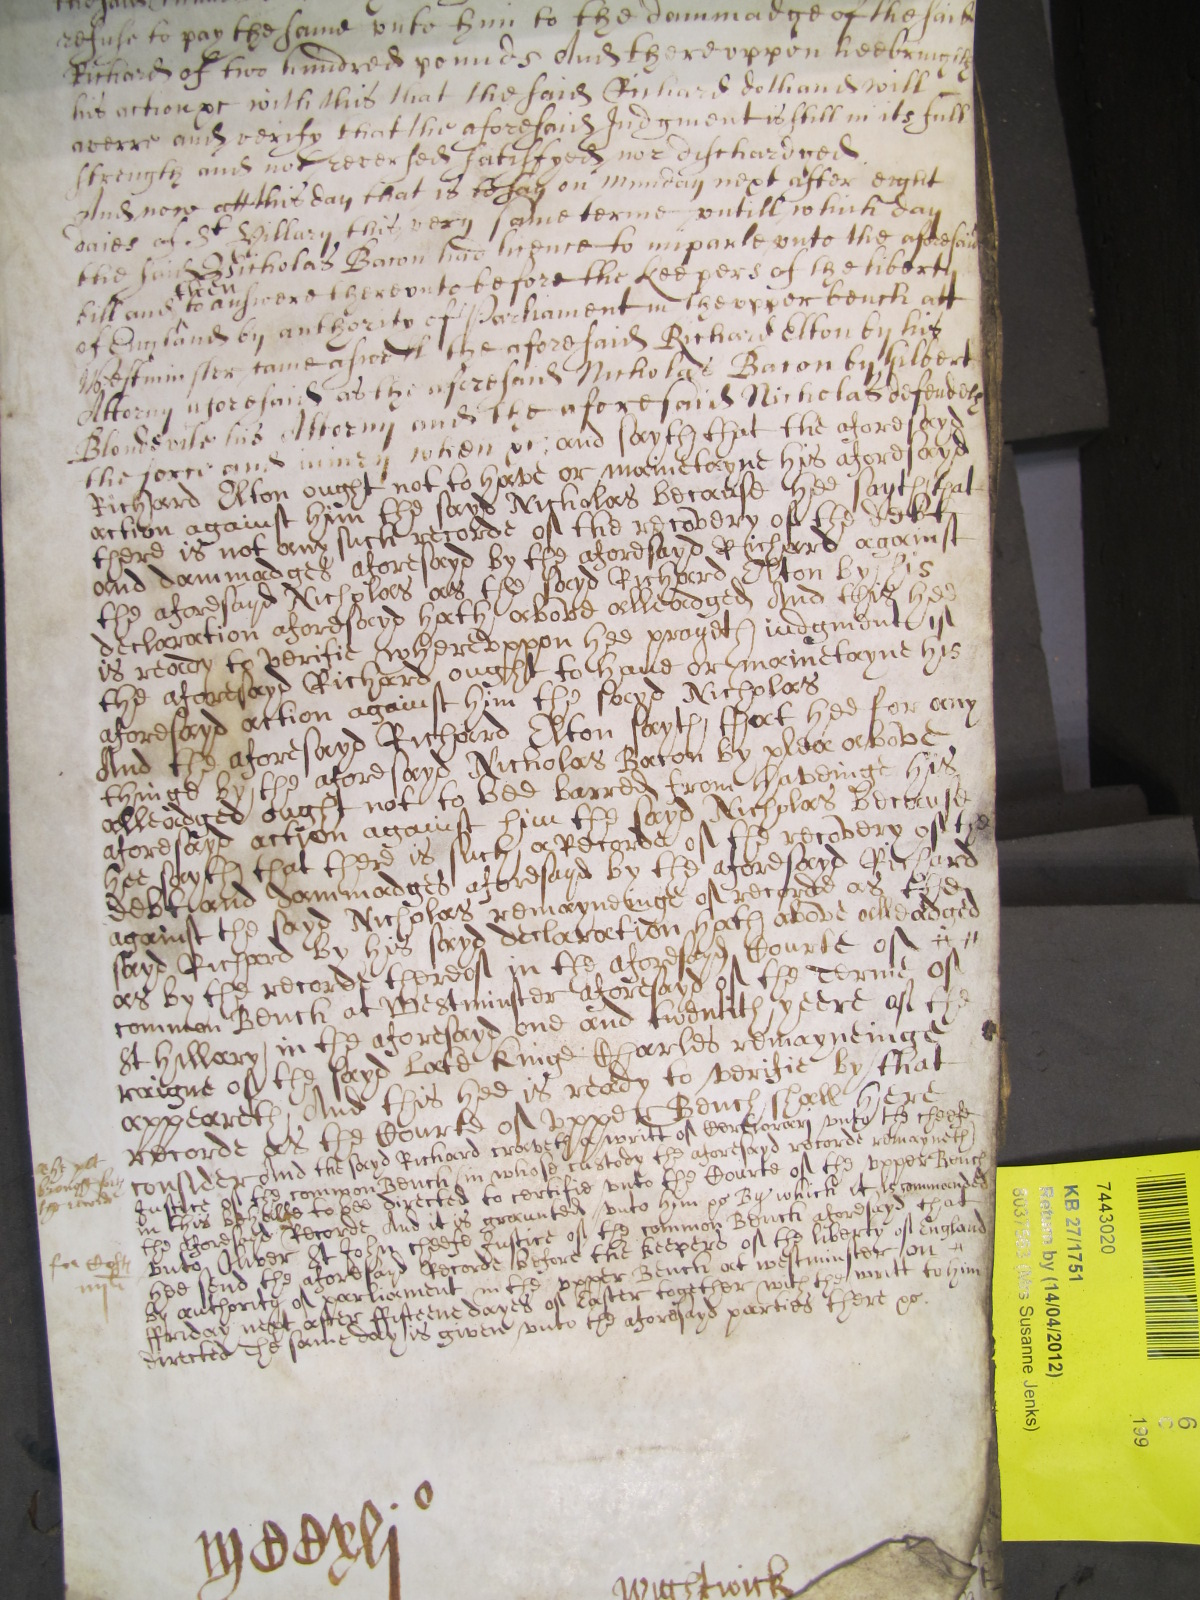 refuse to pay the same unto him to the dammadge of the said
Richard of two hundred pounds And thereuppon hee bringeth
his action &c with this that the said Richard doth and will
averre and verify that the aforesaid Judgment is still in its full
strength and not reversed satisfyed nor discharged
And now att this day that is to say on Munday next after eight
daies of St Hillary this very same terme untill which day
the said Nicholas Bacon had licence to imparle unto the aforesaid
bill and then to answere thereunto before the keepers of the liberty
of England by authority of Parliament in the upper bench att
Westminster came aswell the aforesaid Richard Elton by his
Attorny aforesaid as the aforesaid Nicholas Bacon by Gilbert
his Attorny and the aforesaid Nicholas defendeth
the force and iniury when &c: and sayth that the aforesayd
Richard Elton ought not to have or mainetayne his aforesayd
action against him the sayd Nicholas because hee sayth that
there is not any such recorde of the recovery of the debt
and dammadges aforesayd by the aforesayd Richard against
the aforesayd Nicholas as the sayd Richard Elton by his
declaration aforesayd hath above alleadged And this hee
is ready to verifie whereuppon hee prayeth iudgment if
the aforesayd Richard ought to have or mainetayne his
aforesayd action against him the sayd Nicholas
And the aforesayd Richard Elton sayth that hee for any
thinge by the aforesayd Nicholas Bacon by plea above
alleadged ought not to bee barred from haveinge his
aforesayd action against him the sayd Nicholas because
hee sayth that there is such a Recorde of the recovery of the
debt and dammadges aforesayd by the aforesayd Richard
against the sayd Nicholas remayneinge of recorde as the
sayd Richard by his sayd declaration hath above alleadged
as by the recorde thereof in the aforesayd Courte of
common Bench at Westminster aforesayd of the Terme of
St Hillary in the aforesayd one and twentith yeere of the
raigne of the sayd late Kinge Charles remayneinge
appeareth And this hee is ready to verifie by that
recorde as the Courte of upper Bench shall here
consider And the sayd Richard craveth a writt of Certiorari unto the cheefe
Justice of the common Bench in whose custody the aforesayd recorde remayneth
in this behalfe to bee directed to certifie unto the Courte of the upper Bench
the aforesayd Recorde And it is graunted unto him &c By which it is commanded
unto Oliver St John cheefe Justice of the common Bench aforesayd that
hee send the aforesayd Recorde before the keepers of the liberty of England
by authority of parliament in the upper Bench at Westminster on
ffriday next after fifteene dayes of Easter together with the writt to him
directed The same day is given unto the aforesayd parties there &c.
Wightwick
7443020
KB 27/1751
Return by (14/04/2012)
(Mrs Susanne Jenks)
6
C
199